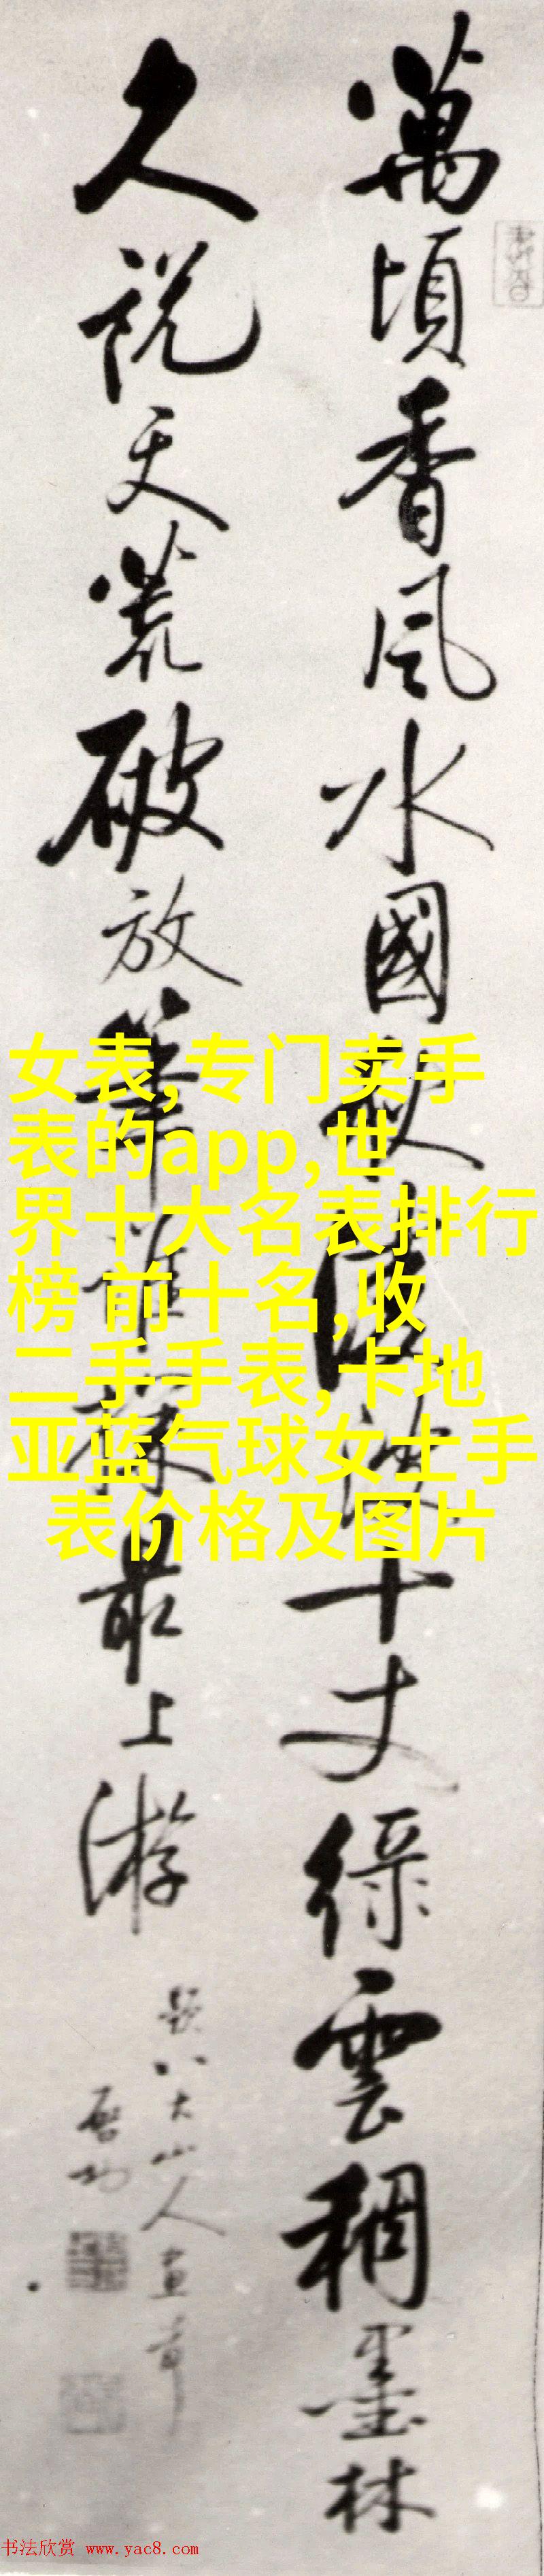 萬頃香風水國秋十丈綠雲稠墨林
久說天荒破放筆誰最上游
題八大山人畫荷
啓功
女表,专门卖手
表的app,世
界十大名表排行
榜 前十名,收
二手手表,卡地
亚蓝气球女士手
表价格及图片
书法欣赏 www.yac8.com